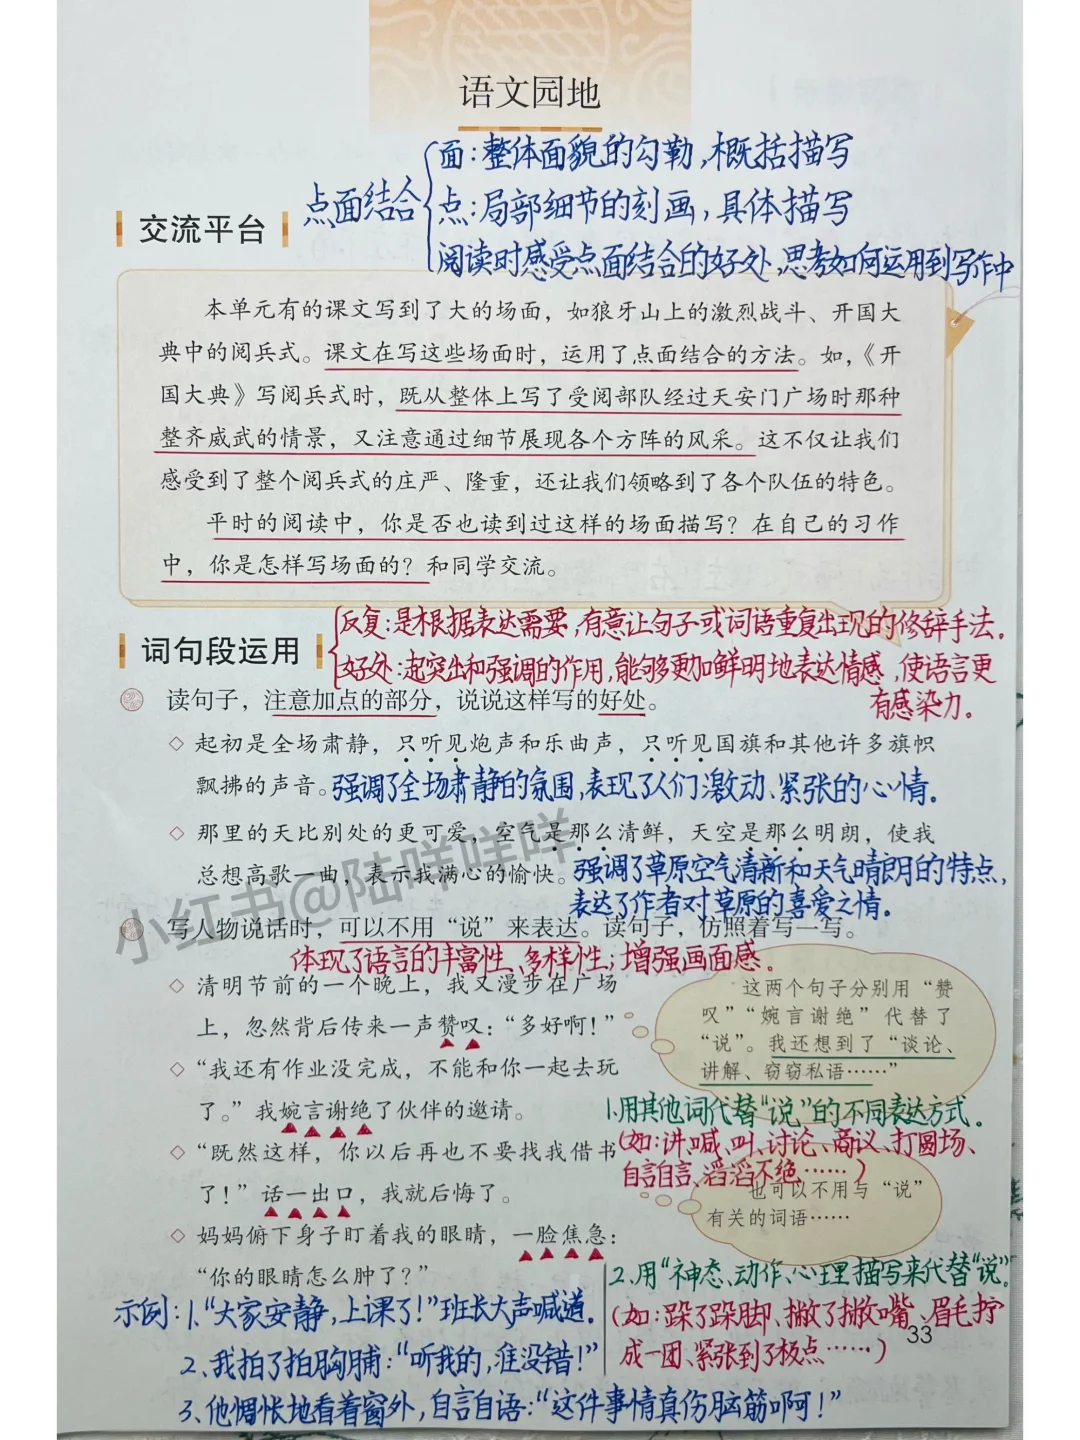 语文园地
点面结合
面:整体面貌的勾勒,概括描写
点:局部细节的刻画,具体描写
阅读时感受点面结合的好处,思考如何运用到写作中
交流平台
本单元有的课文写到了大的场面，如狼牙山上的激烈战斗、开国大
典中的阅兵式。课文在写这些场面时，运用了点面结合的方法。如，《开
国大典》写阅兵式时，既从整体上写了受阅部队经过天安门广场时那种
整齐威武的情景，又注意通过细节展现各个方阵的风采。这不仅让我们
感受到了整个阅兵式的庄严、隆重，还让我们领略到了各个队伍的特色。
平时的阅读中，你是否也读到过这样的场面描写？在自己的习作
中，你是怎样写场面的？和同学交流。
词句段运用
反复:是根据表达需要,有意让句子或词语重复出现的修辞手法。
好处:起突出和强调的作用,能够更加鲜明地表达情感,使语言更
有感染力。
读句子，注意加点的部分，说说这样写的好处。
◇ 起初是全场肃静，只听见炮声和乐曲声，只听见国旗和其他许多旗帜
飘拂的声音。强调了全场肃静的氛围,表现了人们激动、紧张的心情。
◇ 那里的天比别处的更可爱，空气是那么清鲜，天空是那么明朗，使我
总想高歌一曲，表示我满心的愉快。强调了草原空气清新和天气晴朗的特点,
表达了作者对草原的喜爱之情。
写人物说话时，可以不用“说”来表达。读句子，仿照着写一写。
体现了语言的丰富性、多样性;增强画面感。
◇ 清明节前的一个晚上，我又漫步在广场
上，忽然背后传来一声赞叹：“多好啊！”
◇ “我还有作业没完成，不能和你一起去玩
了。”我婉言谢绝了伙伴的邀请。
◇ “既然这样，你以后再也不要找我借书
了！”话一出口，我就后悔了。
◇ 妈妈俯下身子盯着我的眼睛，一脸焦急：
“你的眼睛怎么肿了？”
这两个句子分别用“赞
叹”“婉言谢绝”代替了
“说”。我还想到了“谈论、
讲解、窃窃私语……”
1.用其他词代替“说”的不同表达方式。
(如:讲、喊、叫、讨论、商议、打圆场、
自言自言、滔滔不绝……)
也可以不用与“说”
有关的词语……
2.用“神态、动作、心理描写来代替“说”。
(如:跺了跺脚、撇了撇嘴、眉毛拧
成一团、紧张到了极点……)
33
示例:1、“大家安静,上课了!”班长大声喊道。
2、我拍了拍胸脯:“听我的,准没错!”
3、他惆怅地看着窗外,自言自语:“这件事情真伤脑筋啊!”
小红书@陆咩咩咩